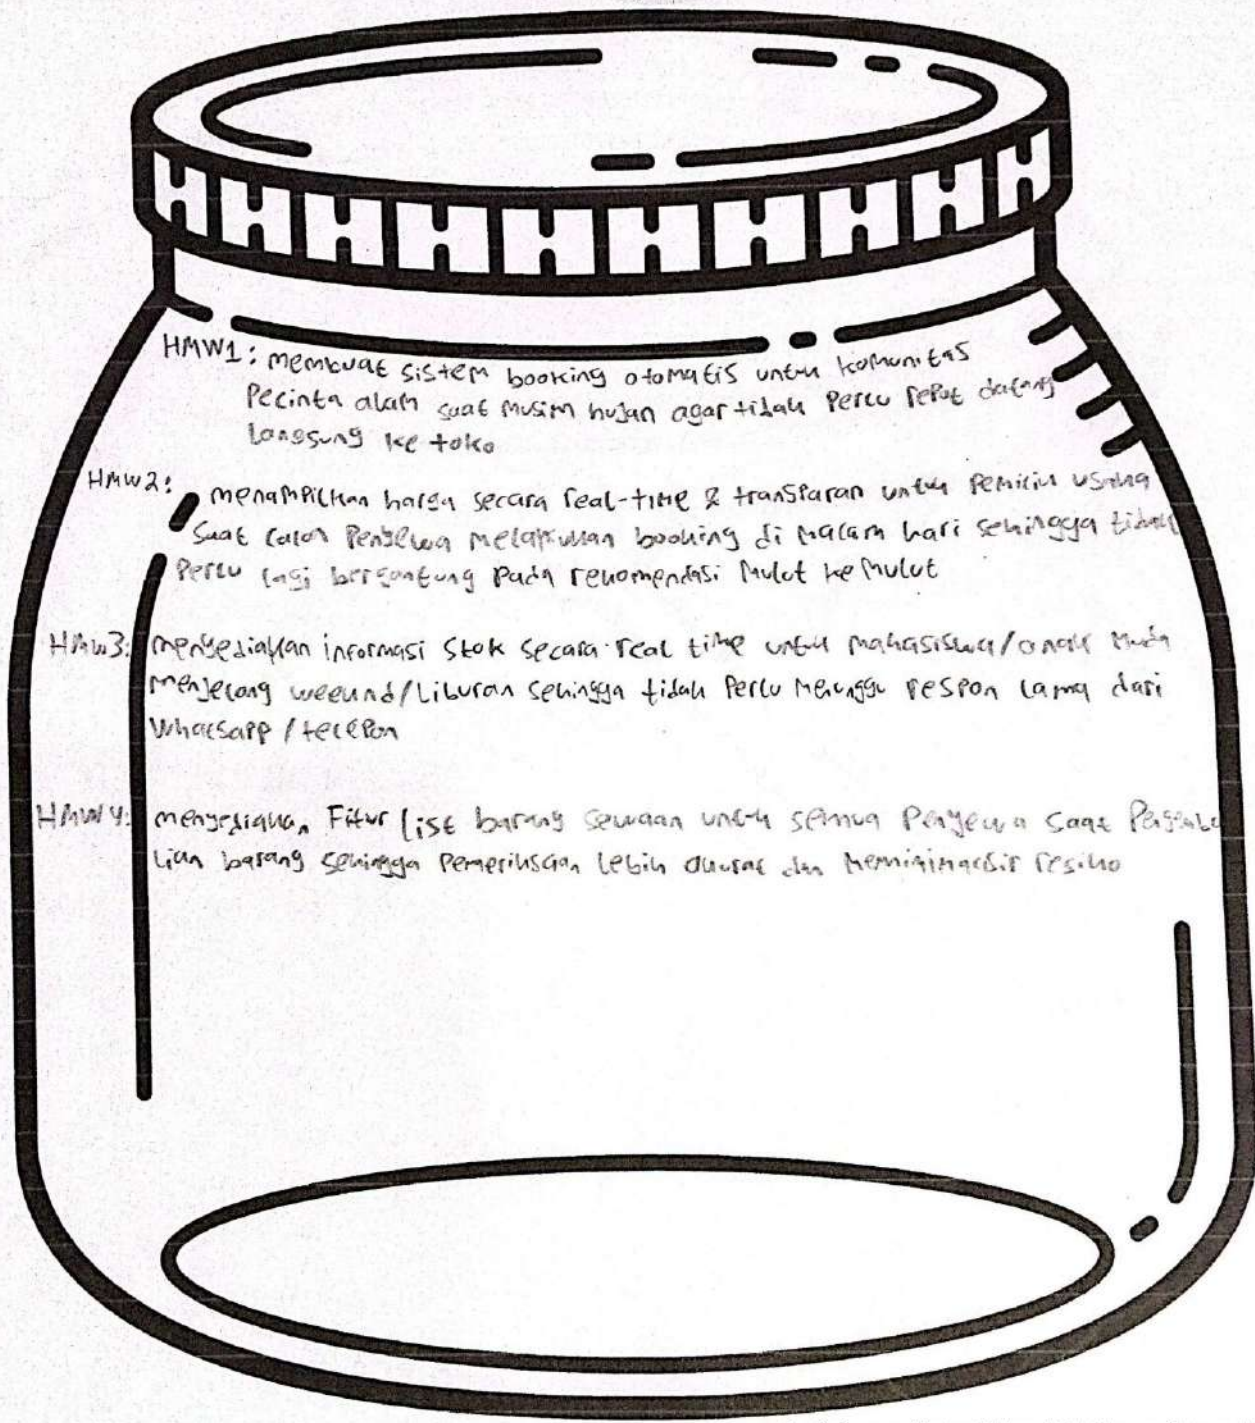 HMW1: membuat sistem booking otomatis untuk komunitas
Pecinta alam saat musim hujan agar tidak Perlu repot datang
Langsung ke toko
HMW2: menampilkan harga secara real-time & transparan untuk Pemilik usaha
saat calon Penyewa melakukan booking di malam hari sehingga tidak
Perlu lagi bergantung Pada rekomendasi Mulut ke Mulut
HMW3: menyediakan informasi Stok secara real time untuk mahasiswa/anak Muda
menjelang weekend/Liburan sehingga tidak Perlu Menunggu respon lama dari
Whatsapp / telepon
HMW4: menyediakan Fitur list barang sewaan untuk semua Penyewa saat Pengemba
lian barang sehingga Pemeriksaan lebih akurat dan Meminimalisir resiko